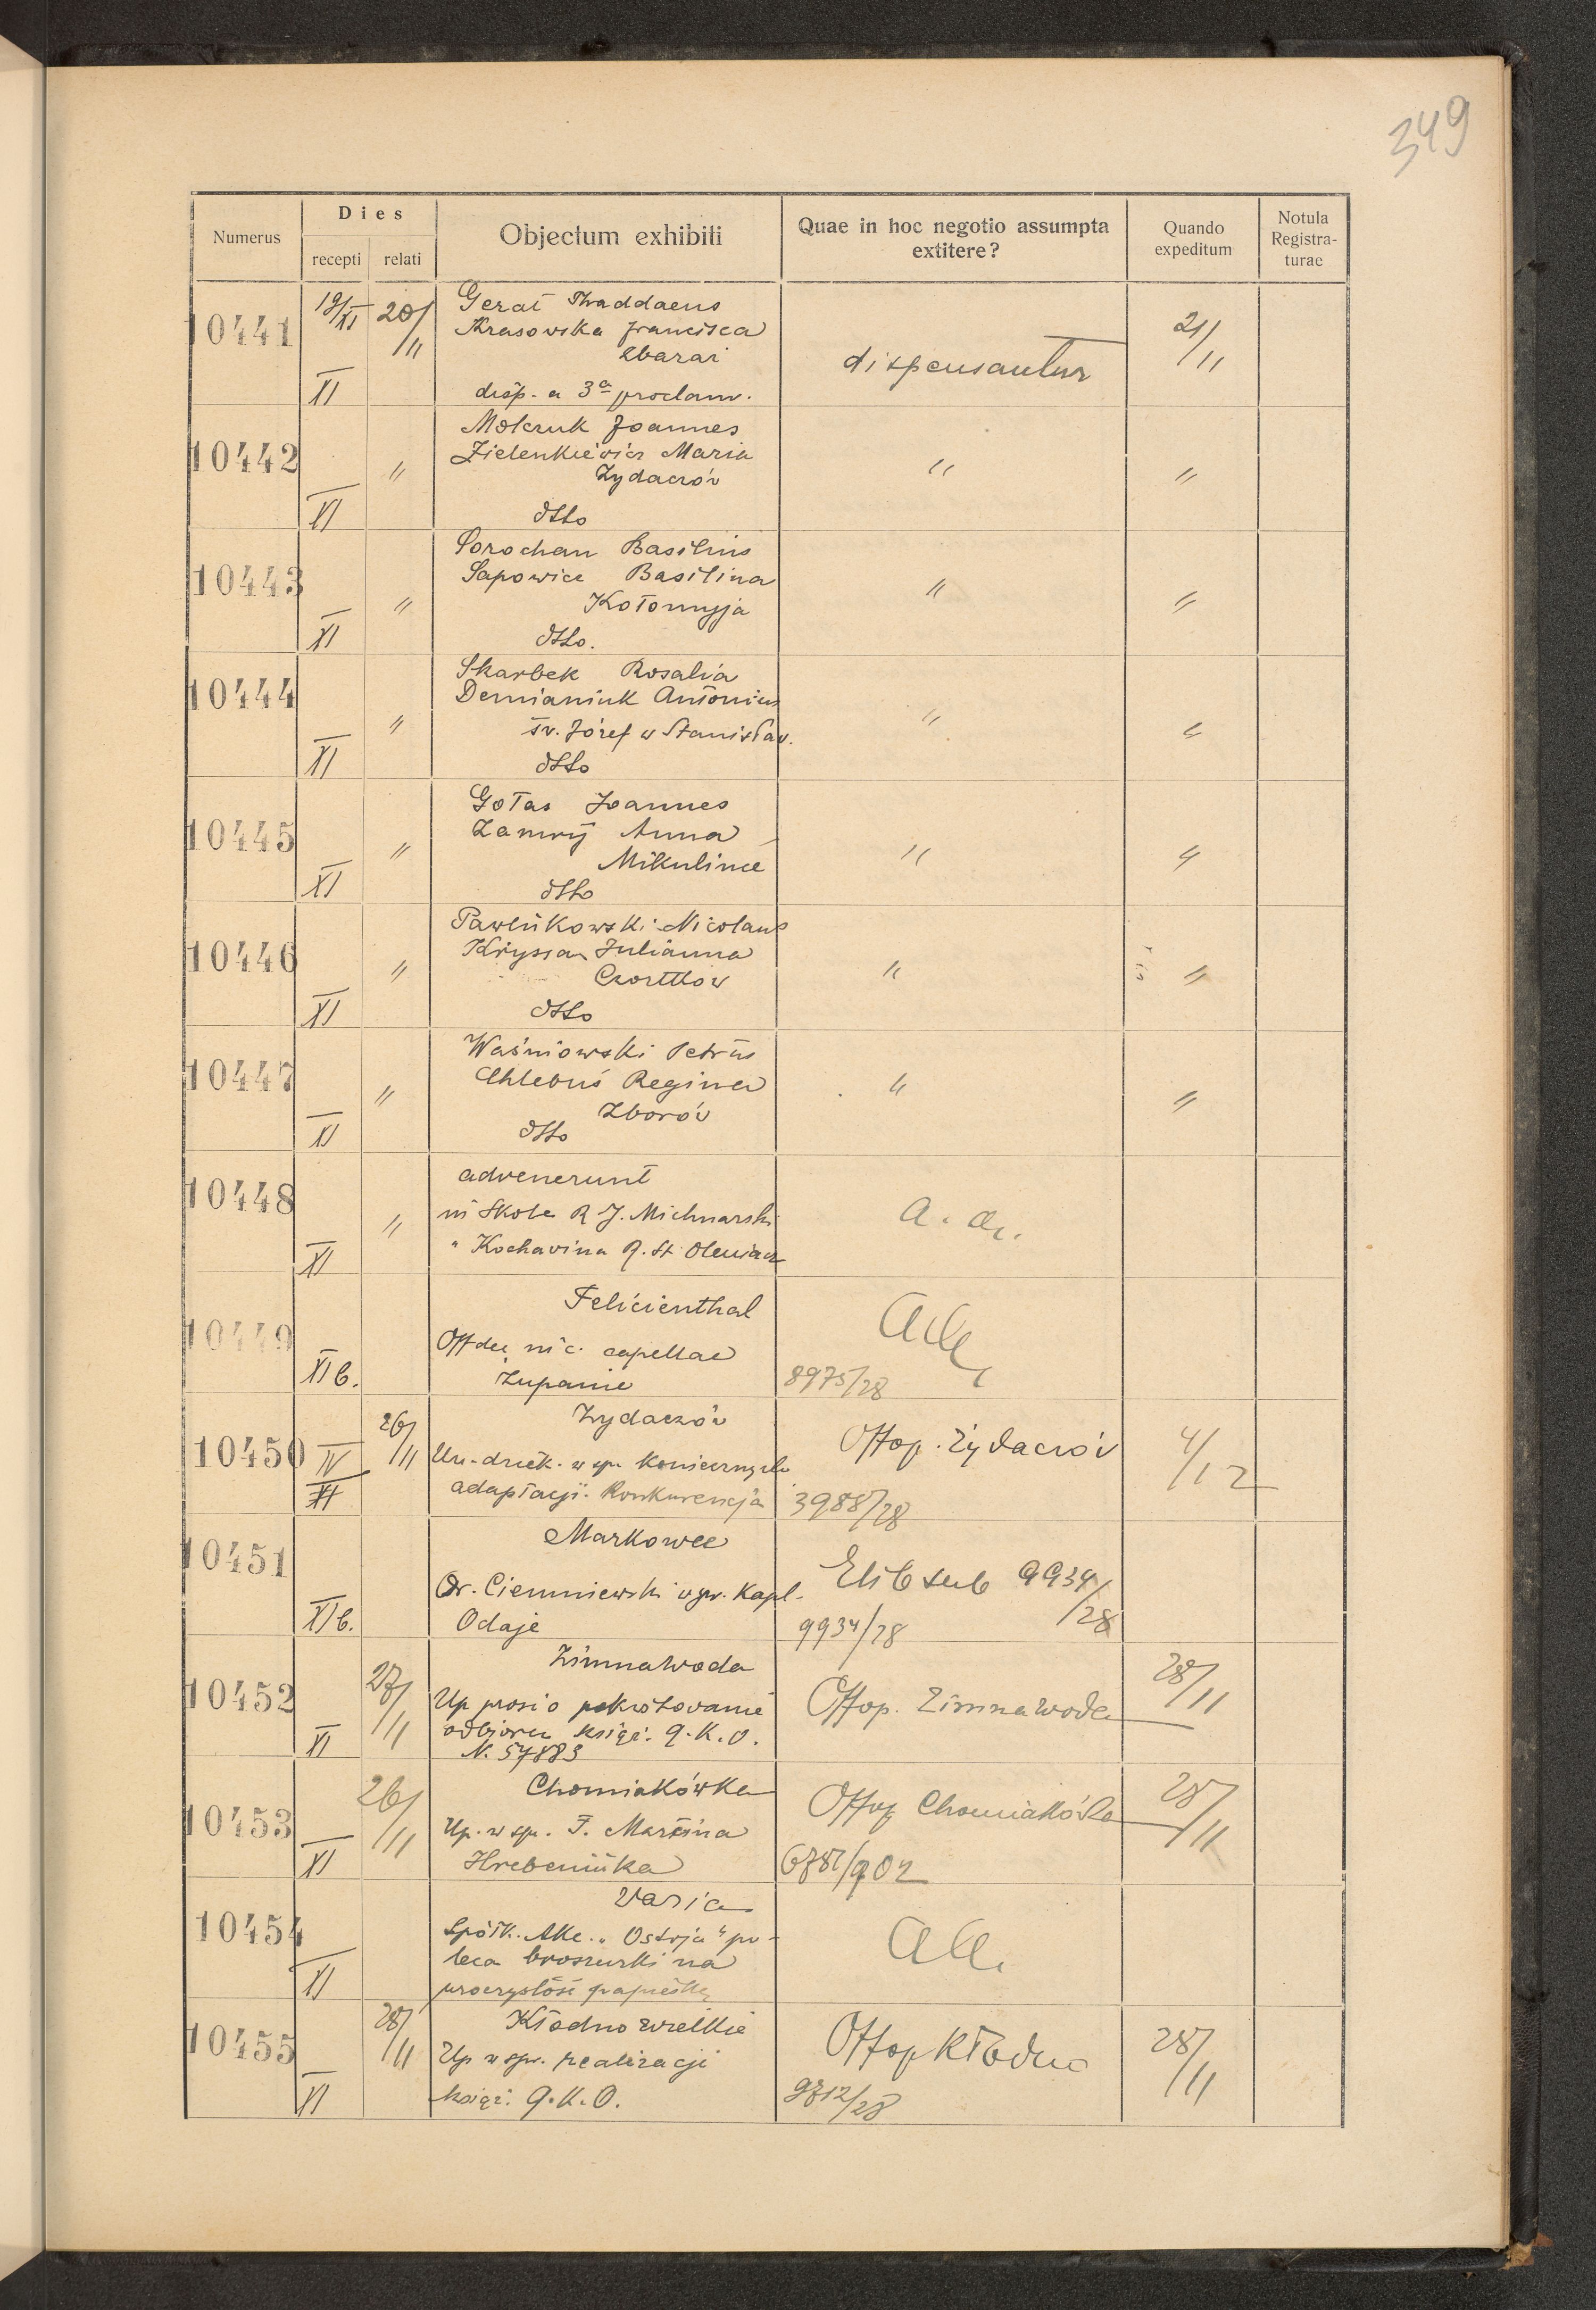 349
Numerus
Dies
recepti
relati
Objectum exhibiti
Quae in hoc negotio assumpta
extitere?
Quando
expeditum
Notula
Registra-
turae
10441
19/XI
20/11
XI
Gerat Thaddaeus
Krasowska Francisca
Zbaraż
disp. a 3a proclam.
dispensantur
21/11
10442
XI
"
Mokruk Joannes
Zielenkiewicz Maria
Żydaczów
dtto
"
"
10443
XI
"
Sorochan Basilius
Sapowicz Basilina
Kołomyja
dtto.
"
"
10444
XI
"
Skarbek Rosalia
Demianiuk Antonius
św. Józef w Stanisław.
dtto
"
"
10445
XI
"
Gołas Joannes
Zamryj Anna
Mikulince
dtto
"
"
10446
XI
"
Pawlukowski Nicolaus
Kryssa Julianna
Czortków
dtto
"
"
10447
XI
"
Waśniowski Petrus
Chlebuś Regina
Zborów
dtto
"
"
10448
XI
"
advenerunt
in Skole R J. Michnarski
" Kochavina R. St Oleniacz
a. a.
10449
XIb.
Felicienthal
Offdec in c. capellae
Żupanie
8975/28
10450
IV
XI
26/11
Żydaczów
Urz. dziek. w spr. koniecznych
adaptacji. Konkurencja
Offop. Żydaczów
3988/28
4/12
10451
XIb.
Markowce
Dr. Ciemniewski w spr. Kapl.
Odaje
Elib sub 9934/28
9934/28
10452
XI
27/11
Zimnawoda
Up prosi o pokwitowanie
odbioru książ. P.K.O.
N. 57883
Offop. Zimnawoda
28/11
10453
XI
26/11
Chomiakówka
Up. w spr. F. Marcina
Hrebeniuka
Offop Chomiakówka
6787/902
28/11
10454
XI
Varia
Spółk. Akc. „Ostoja" po-
leca broszurki na
uroczystość papieską
10455
XI
28/11
Kłodno wielkie
Up w spr. realizacji
książ. P.K.O.
Offop Kłodno
9712/28
28/11